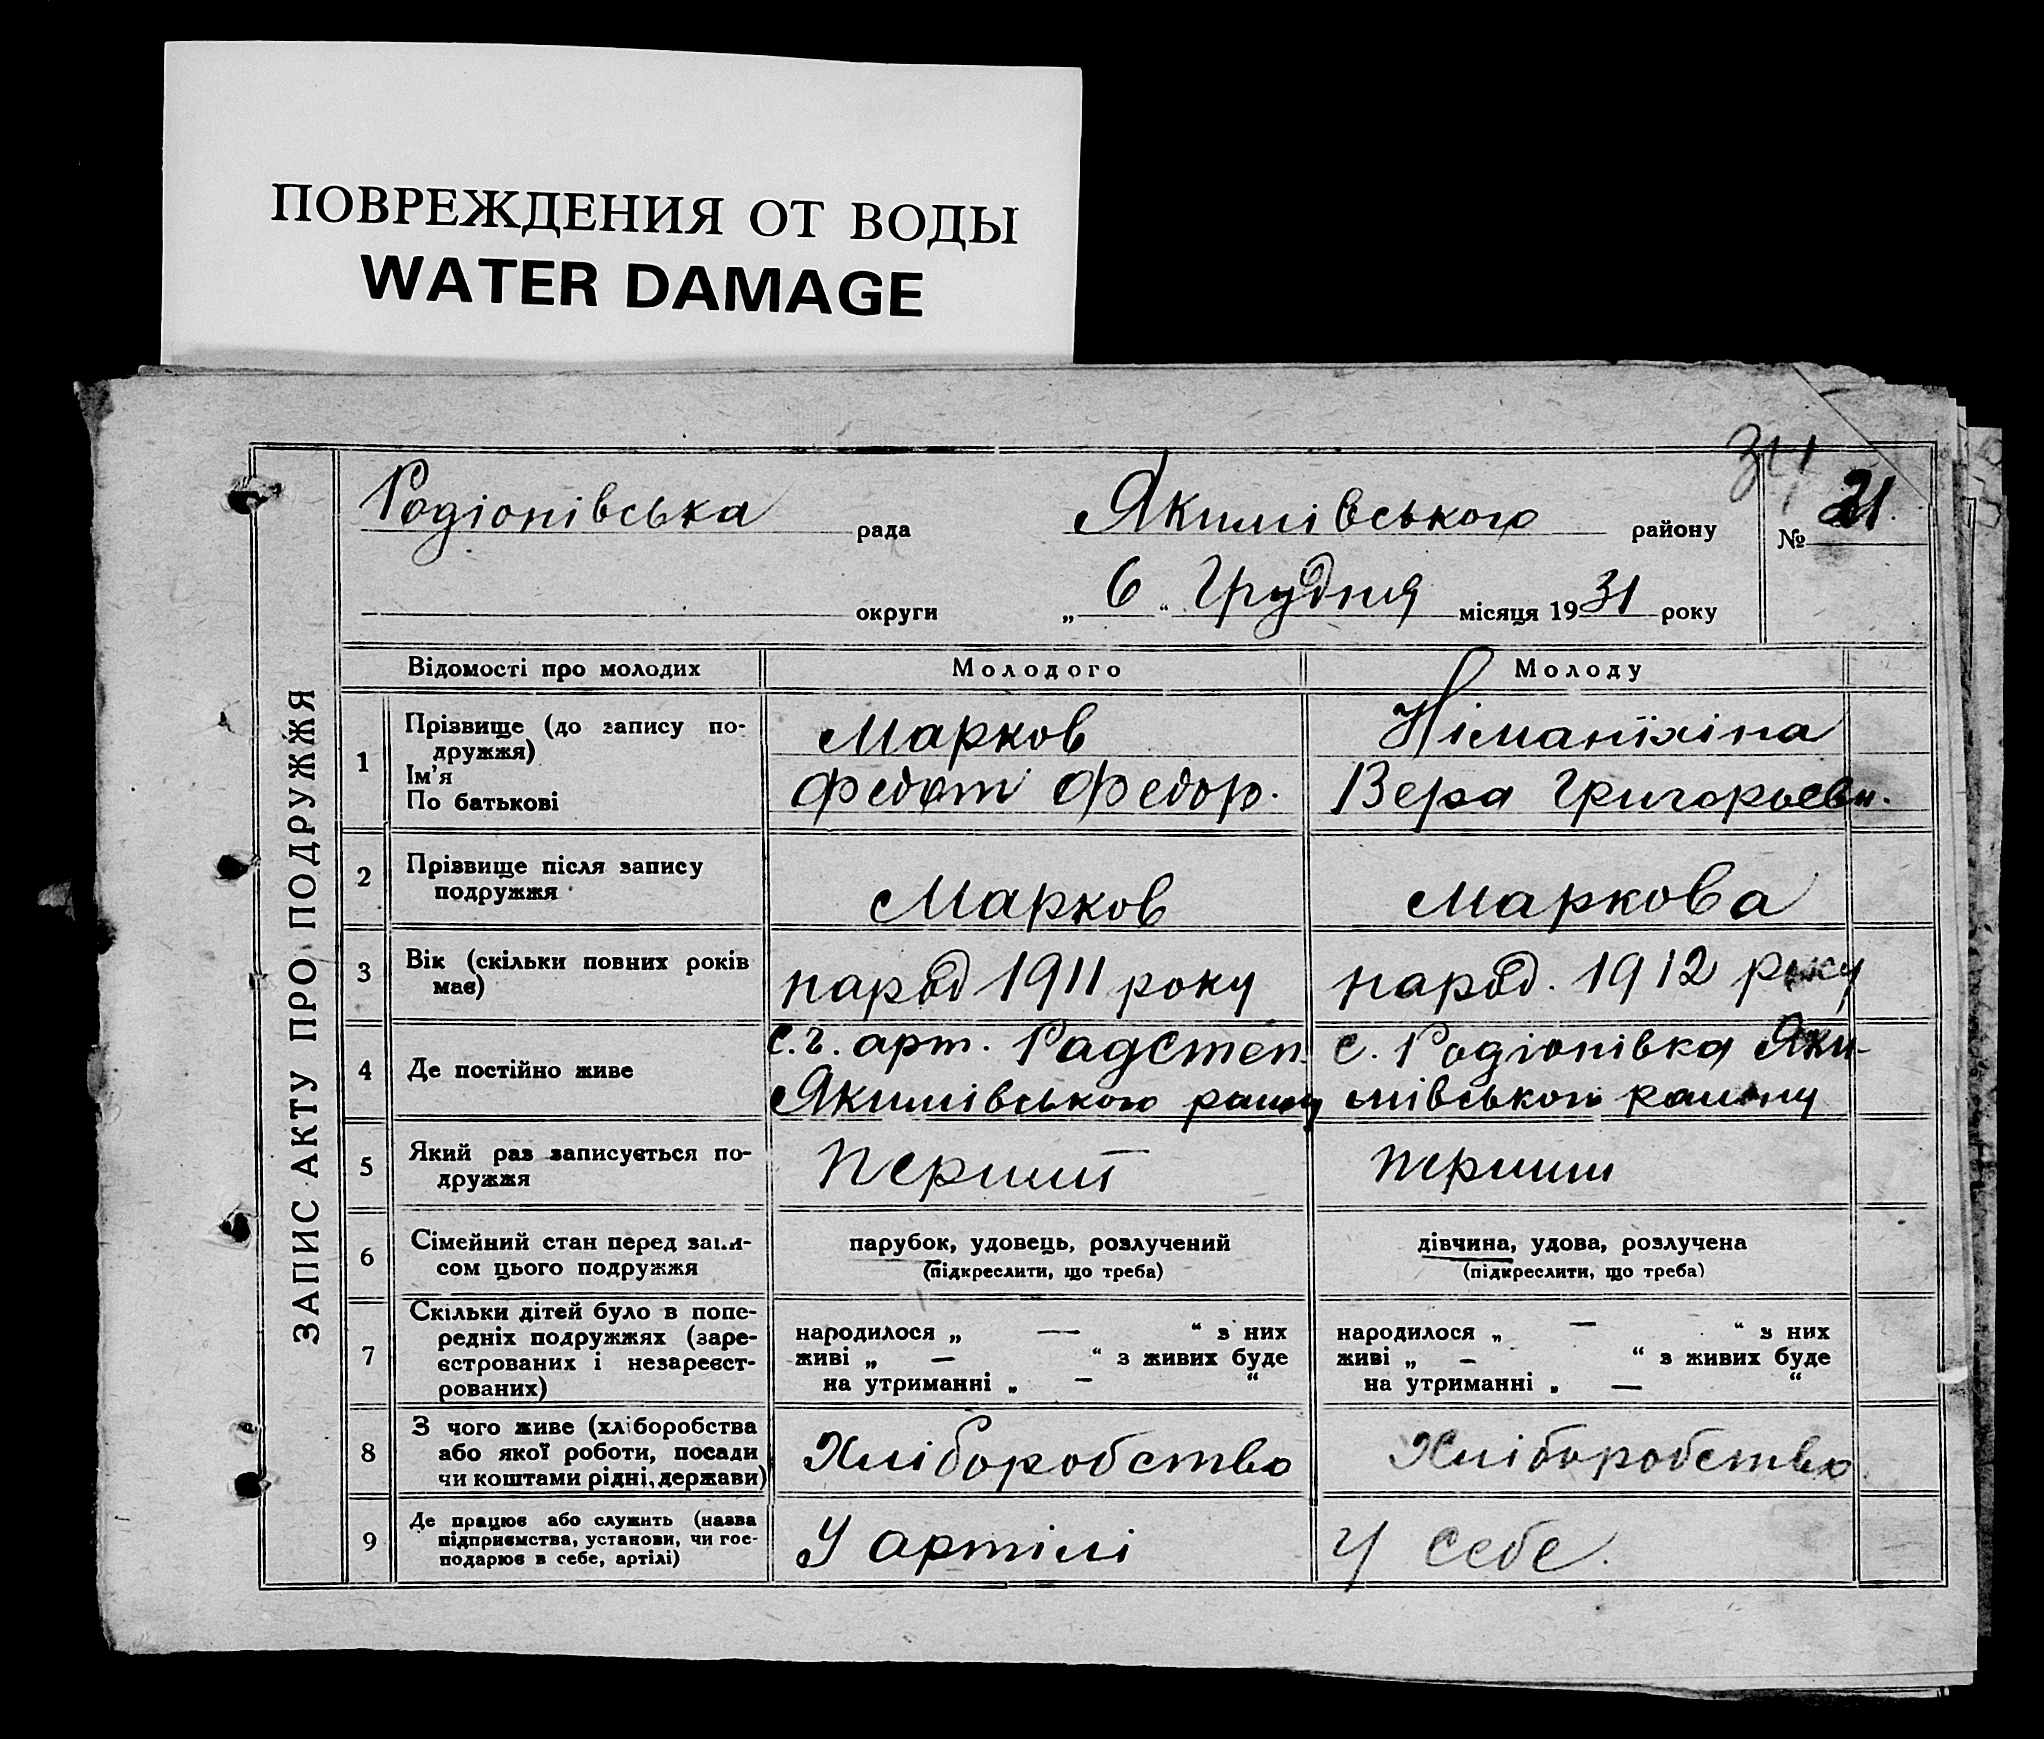 ПОВРЕЖДЕНИЯ ОТ ВОДЫ
WATER DAMAGE
34
ЗАПИС АКТУ ПРО ПОДРУЖЖЯ
Родіонівська рада Якимівського району № 21
округи „ 6 “ Грудня місяця 1931 року
Відомості про молодих Молодого Молоду
1 Прізвище (до запису по-
дружжя)
Ім’я
По батькові
Марков
Федот Федор.
Вера Григорьевн.
2 Прізвище після запису
подружжя
Марков Маркова
3 Вік (скільки повних років
має)
народ 1911 року народ. 1912 року
4 Де постійно живе
с.г. арт. РадСтеп
Якимівського
с. Родіонівка Яки-
мівського
5 Який раз записується по-
дружжя
перший перший
6 Сімейний стан перед запи-
сом цього подружжя
парубок, удовець, розлучений
(підкреслити, що треба)
дівчина, удова, розлучена
(підкреслити, що треба)
7 Скільки дітей було в попе-
редніх подружжях (заре-
єстрованих і незареєст-
рованих)
народилося „ — “ з них
живі „ — “ з живих буде
на утриманні „ — “
народилося „ — “ з них
живі „ — “ з живих буде
на утриманні „ — “
8 З чого живе (хліборобства
або якої роботи, посади
чи коштами рідні, держави)
Хліборобство Хліборобство
9 Де працює або служить (назва
підприємства, установи, чи гос-
подарює в себе, артілі)
У артілі У себе.